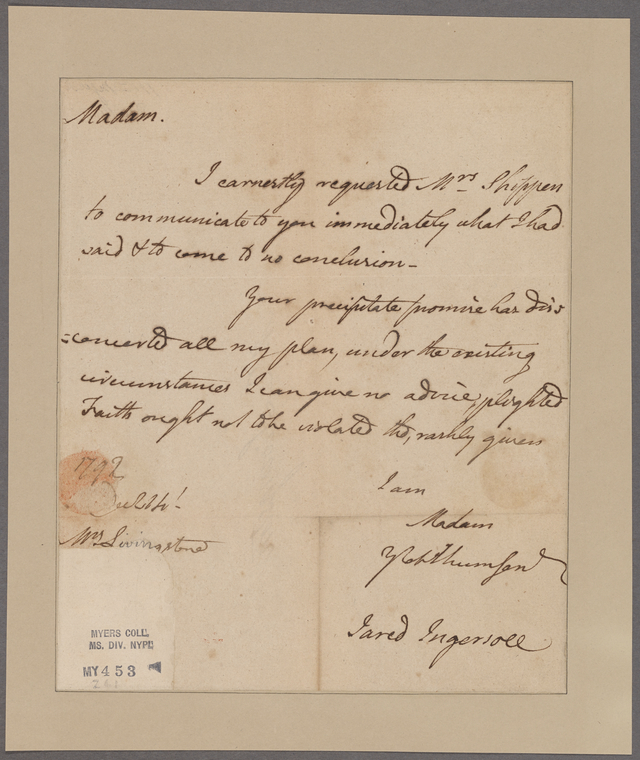 Madam.
I earnestly requested Mrs Shippen
to communicate to you immediately what I had
said & to come to no conclusion—
Your precipitate promise has dis=
=concerted all my plan, under the existing
circumstances I can give no advice, plighted
Faith ought not to be violated tho, rashly given
I am
Madam
Jared Ingersoll
1792
Mrs Livingstone
MYERS COLL.
MS. DIV. NYPL
MY 453
261